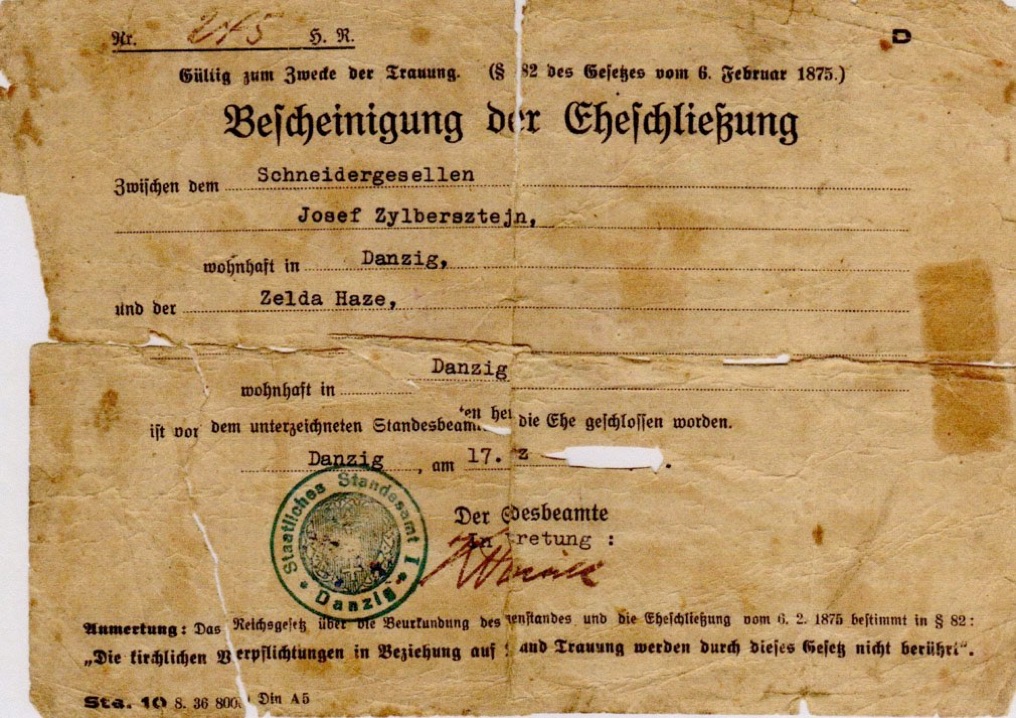 Nr. 245 H. R.
D
Gültig zum Zwecke der Trauung. (§ 82 des Gesetzes vom 6. Februar 1875.)
Bescheinigung der Eheschließung
Zwischen dem Schneidergesellen
Josef Zylbersztejn,
wohnhaft in Danzig,
und der Zelda Haze,
wohnhaft in Danzig
ist vor dem unterzeichneten Standesbeam ten heu die Ehe geschlossen worden.
Danzig, am 17. z .
Staatliches Standesamt I
Danzig
Der desbeamte
In retung :
Anmerkung: Das Reichsgesetz über die Beurkundung des enstandes und die Eheschließung vom 6. 2. 1875 bestimmt in § 82:
„Die kirchlichen Verpflichtungen in Beziehung auf und Trauung werden durch dieses Gesetz nicht berührt".
Sta. 10 8. 36 800 Din A5